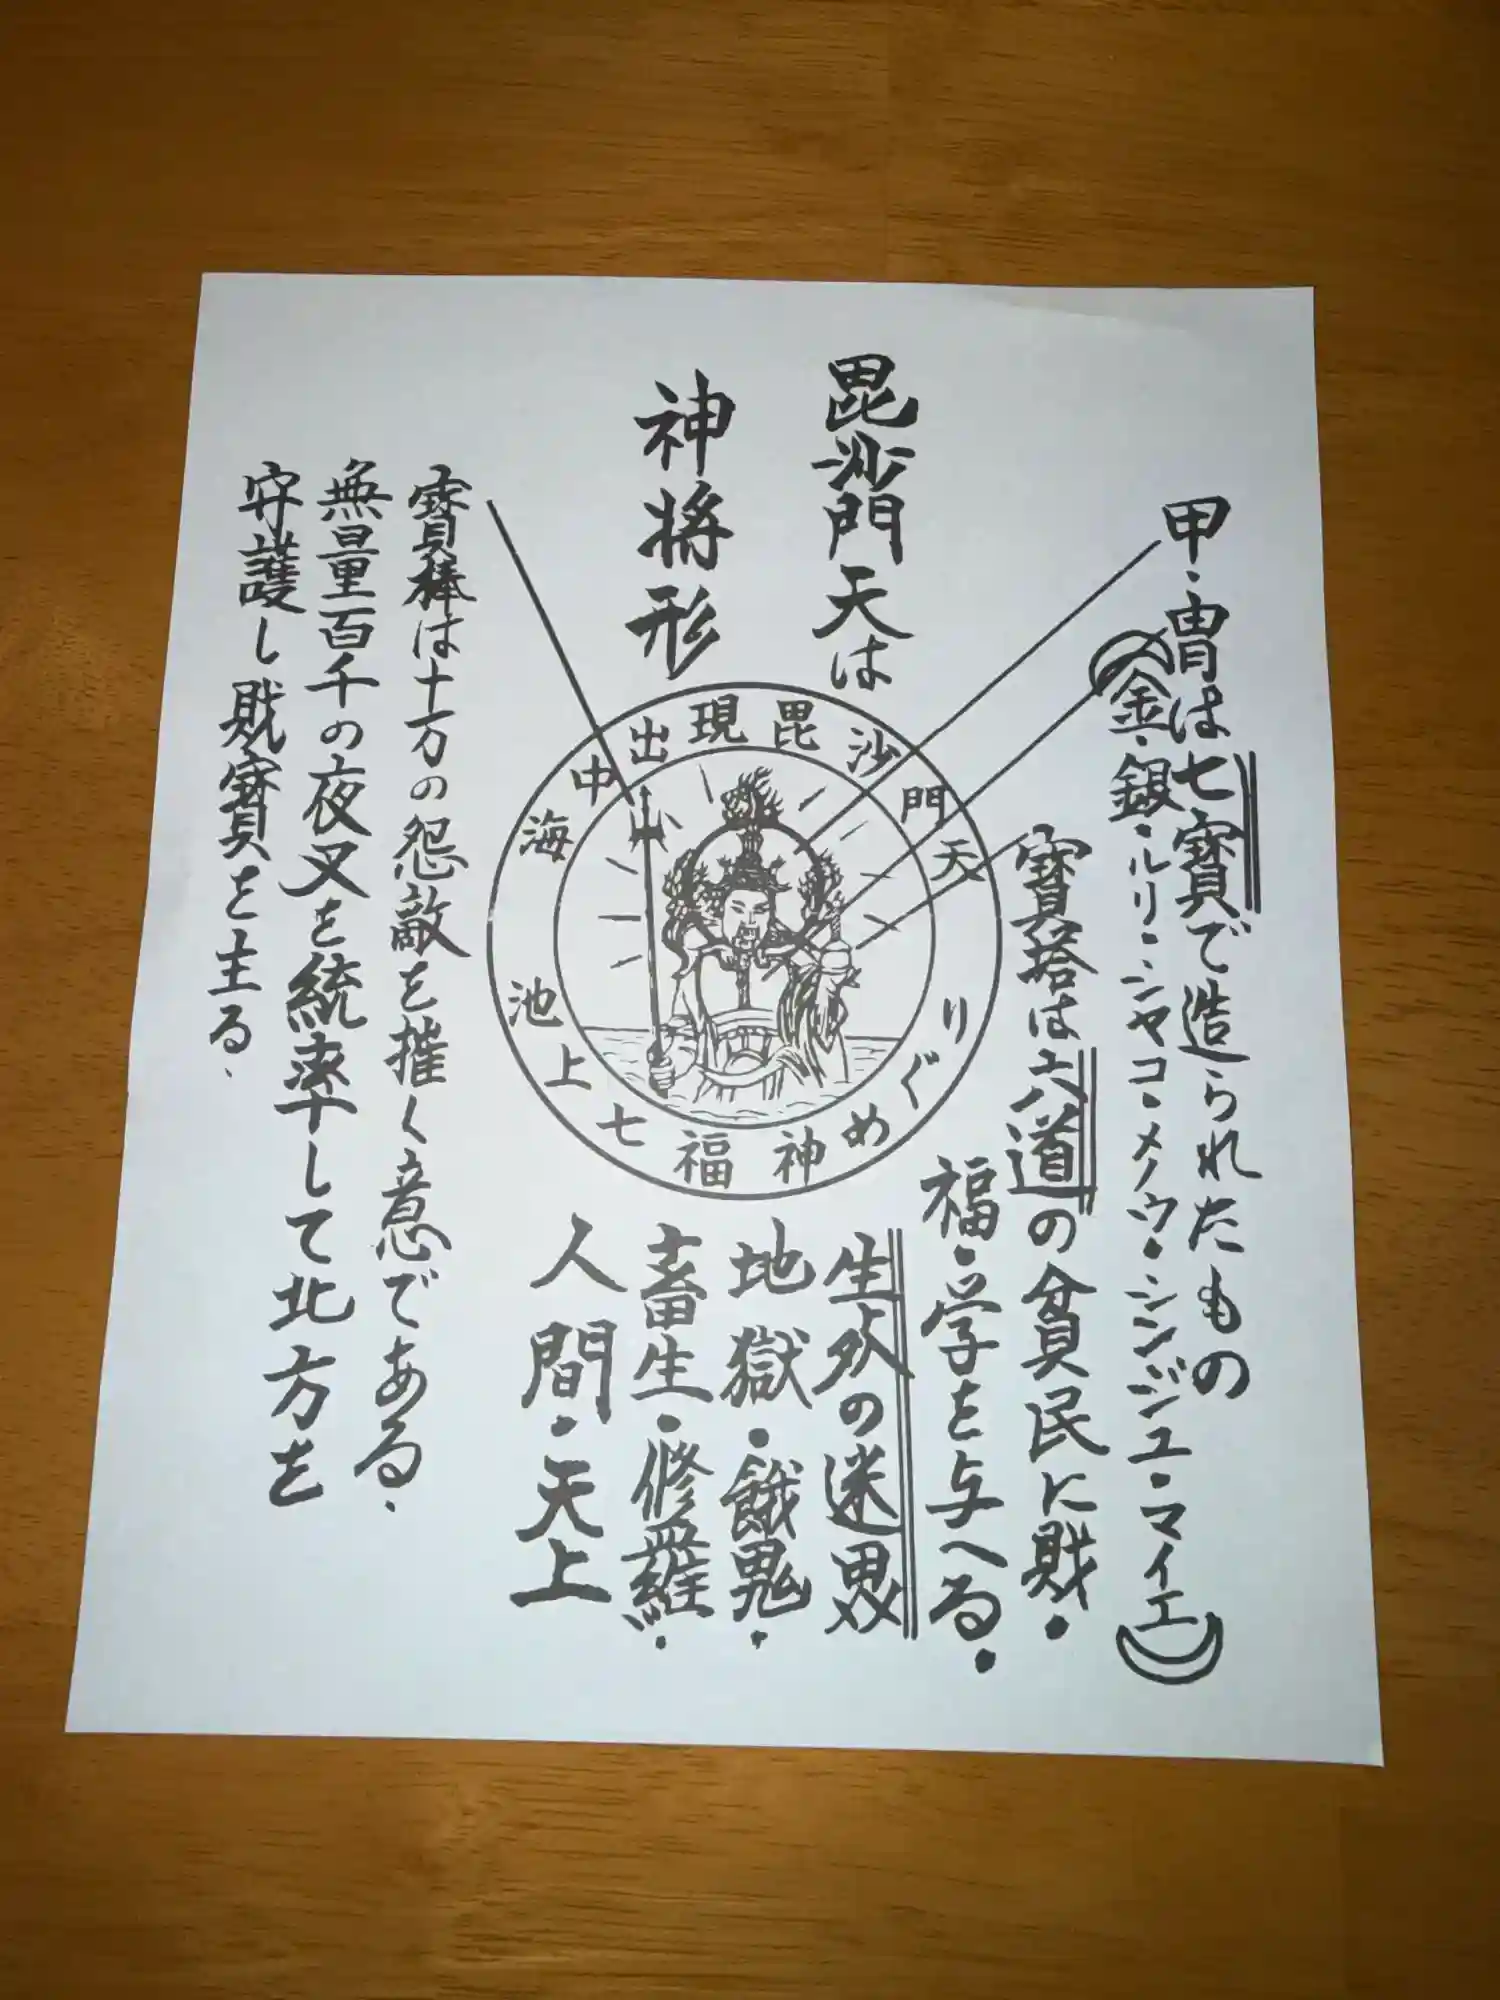 甲・冑は七寳で造られたもの
(金・銀・ルリ・シャコ・メノウ・シンジュ・マイエ)
寳塔は六道の貧民に財・
福・学を与へる・
毘沙門天は
神将形
生死の迷界
地獄・餓鬼・
畜生・修羅・
人間・天上
海中出現毘沙門天
池上七福神めぐり
寳棒は十万の怨敵を摧く意である・
無量百千の夜叉を統率して北方を
守護し財寳を主る・